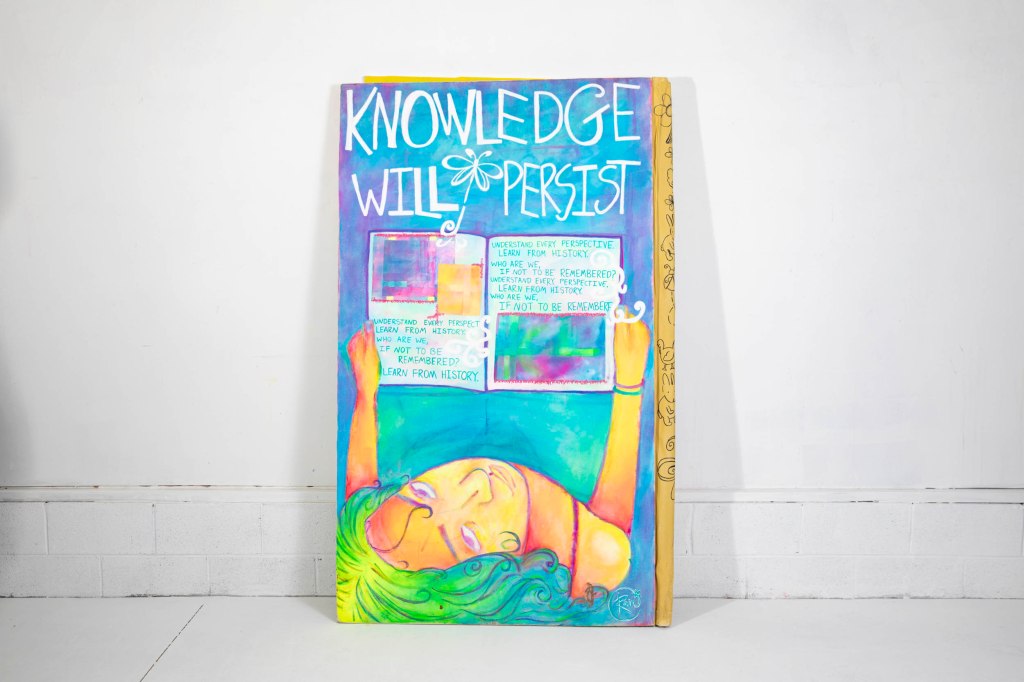 KNOWLEDGE
WILL PERSIST
UNDERSTAND EVERY PERSPECT
LEARN FROM HISTORY.
WHO ARE WE,
IF NOT TO BE
REMEMBERED?
LEARN FROM HISTORY.
UNDERSTAND EVERY PERSPECTIVE.
LEARN FROM HISTORY.
WHO ARE WE,
IF NOT TO BE REMEMBERED?
UNDERSTAND EVERY PERSPECTIVE.
LEARN FROM HISTORY.
WHO ARE WE,
IF NOT TO BE REMEMBERE